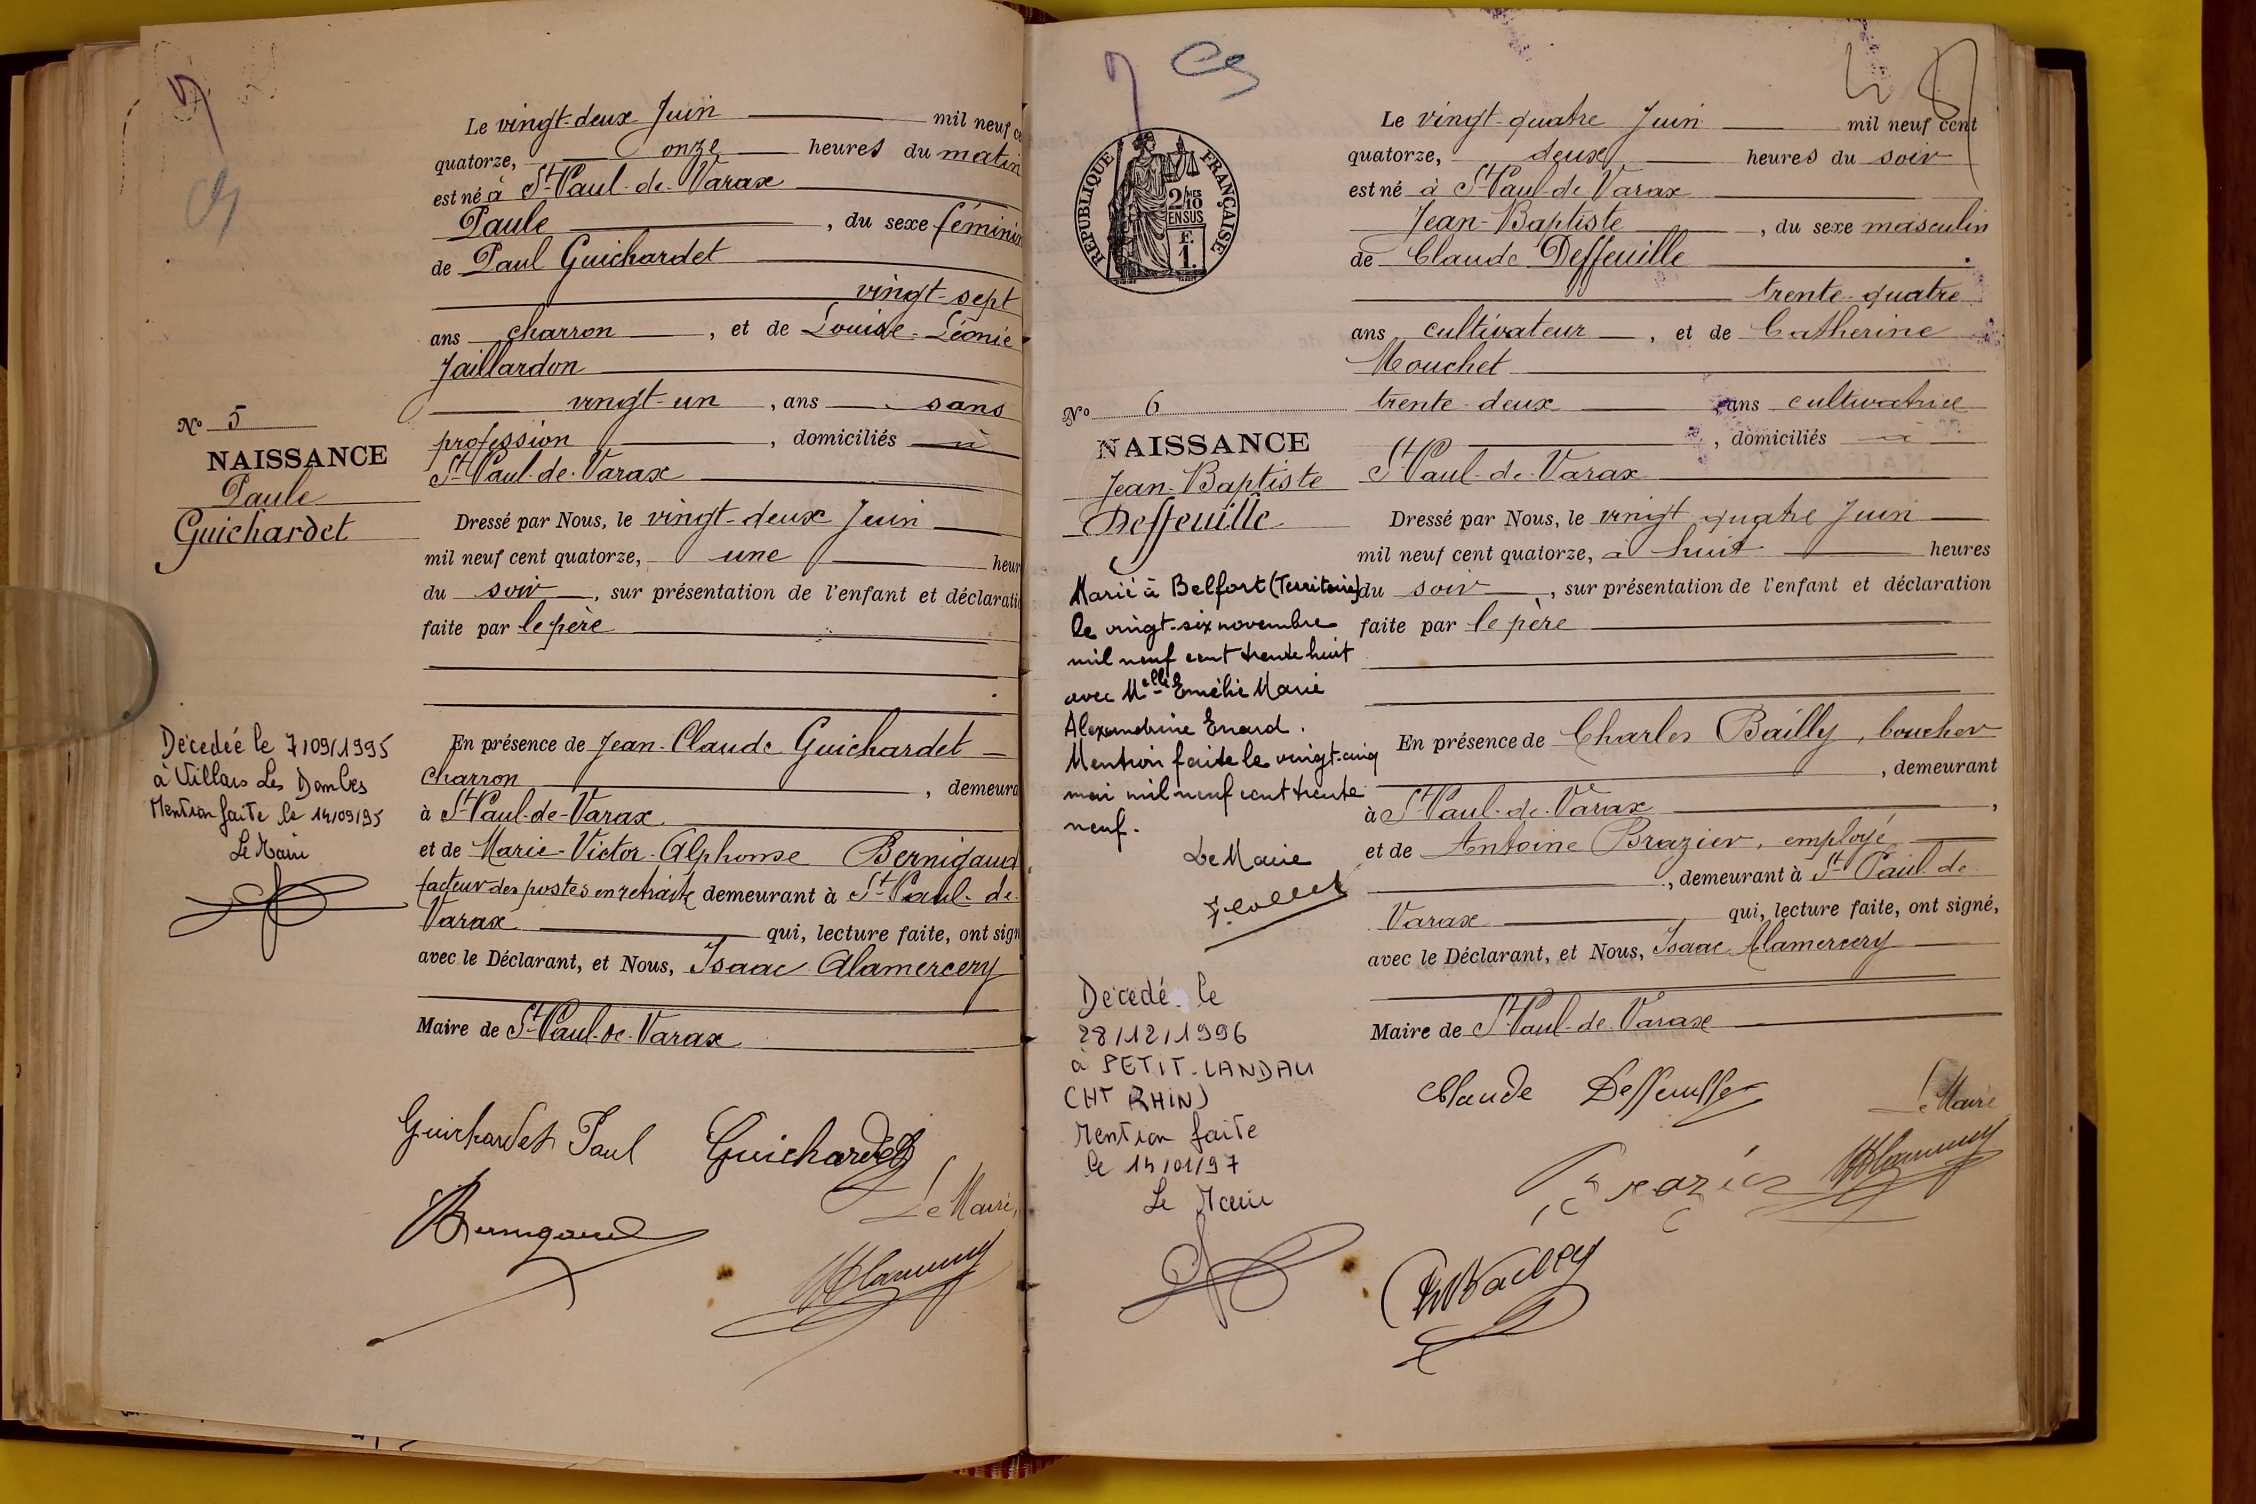 Le vingt-deux Juin mil neuf ce
quatorze, onze heures du matin
est né à St-Paul-de-Varax
Paule, du sexe féminin
de Paul Guichardet
vingt-sept
ans charron, et de Louise-Léonie
Jaillardon
vingt-un, ans sans
profession, domiciliés à
St-Paul-de-Varax
Dressé par Nous, le vingt-deux Juin
mil neuf cent quatorze, une heur
du soir, sur présentation de l'enfant et déclarati
faite par le père
En présence de Jean-Claude Guichardet
charron, demeura
à St-Paul-de-Varax
et de Marie-Victor-Alphonse Bernigaud
facteur des postes en retraite demeurant à St-Paul-de-
Varax qui, lecture faite, ont sign
avec le Déclarant, et Nous, Isaac Alamercery
Maire de St-Paul-de-Varax
Guichardet Paul Guichardet
Bernigaud
Le Maire,
No 5
NAISSANCE
Paule
Guichardet
Décedée le 7/09/1995
à Villars Les Dombes
Mention faite le 14/09/95
Le Maire
RÉPUBLIQUE FRANÇAISE
2/10 MES
EN SUS
F.
1.
No 6
NAISSANCE
Jean-Baptiste
Deffeuille
Marié à Belfort (Territoire)
le vingt-six novembre
mil neuf cent trente huit
avec Melle Emélie Marie
Alexandrine Enard.
Mention faite le vingt-cinq
mai mil neuf cent trente
neuf.
Le Maire
Décedé le
28/12/1996
à PETIT-LANDAU
(HT RHIN)
Mention faite
le 14/01/97
Le Maire
Le vingt-quatre Juin mil neuf cent
quatorze, deux heures du soir
est né à St-Paul-de-Varax
Jean-Baptiste, du sexe masculin
de Claude Deffeuille
trente-quatre
ans cultivateur, et de Catherine
Mouchet
trente-deux ans cultivatrice
, domiciliés à
St-Paul-de-Varax
Dressé par Nous, le vingt quatre Juin
mil neuf cent quatorze, à huit heures
du soir, sur présentation de l'enfant et déclaration
faite par le père
En présence de Charles Bailly, boucher
, demeurant
à St-Paul-de-Varax,
et de Antoine Brazier, employé
, demeurant à St-Paul-de-
Varax qui, lecture faite, ont signé,
avec le Déclarant, et Nous, Isaac Alamercery
Maire de St-Paul-de-Varax
Claude Deffeuille
Le Maire
Brazier